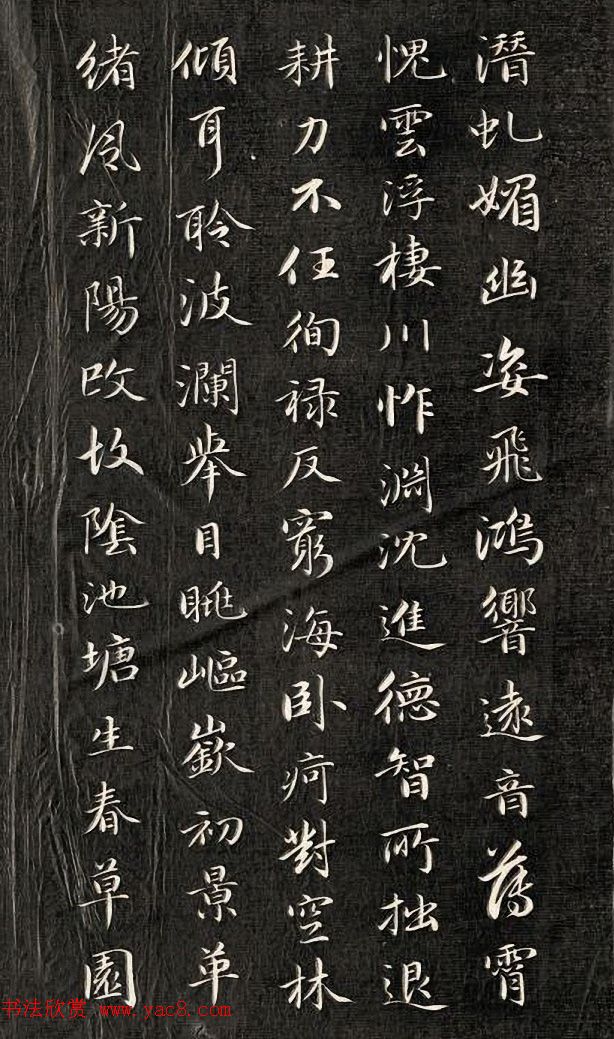 潛虬媚幽姿飛鴻響遠音薄霄
愧雲浮棲川怍淵沈進德智所拙退
耕力不任徇祿反窮海卧疴對空林
傾耳聆波瀾舉目眺嶇嶔初景革
緒風新陽改故陰池塘生春草園
书法欣赏 www.yac8.com